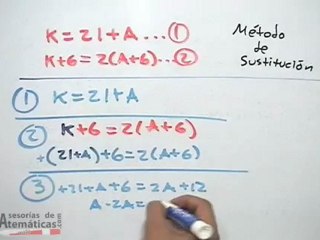 K=21+A...①
K+6=2(A+6)...②
Método
de
Sustitución
① K=21+A
② K+6=2(A+6)
+(21+A)+6=2(A+6)
③ +21+A+6=2A+12
A-2A=
Asesorías de
Matemáticas.com